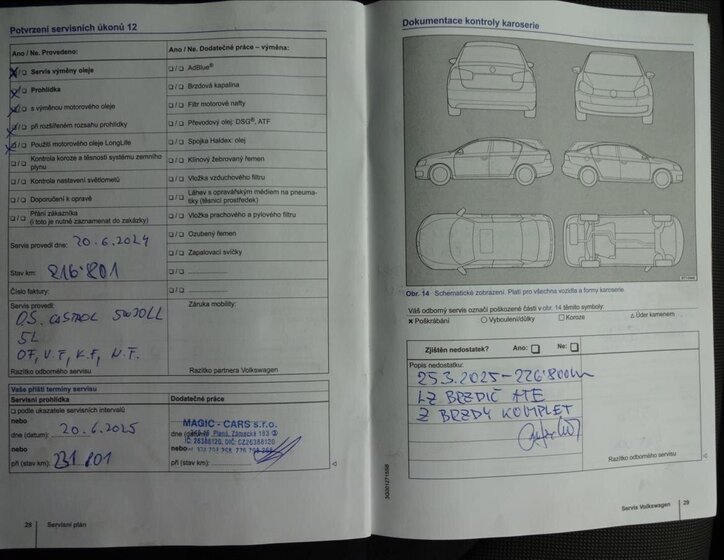 Potvrzení servisních úkonů 12
Ano / Ne. Provedeno:
Servis výměny oleje
Prohlídka
s výměnou motorového oleje
při rozšířeném rozsahu prohlídky
Použití motorového oleje LongLife
Kontrola koroze a těsnosti systému zemního
plynu
Kontrola nastavení světlometů
Doporučení k opravě
Přání zákazníka
(i toto je nutné zaznamenat do zakázky)
Servis provedl dne: 20.6.2024
Stav km: 216'801
Číslo faktury:
Servis provedl:
O.S. CASTROL 5W30LL
5L
OF, V.F, K.F, N.F.
Razítko odborného servisu
Ano / Ne. Dodatečné práce – výměna:
AdBlue®
Brzdová kapalina
Filtr motorové nafty
Převodový olej: DSG®, ATF
Spojka Haldex: olej
Klínový žebrovaný řemen
Vložka vzduchového filtru
Láhev s opravářským médiem na pneuma-
tiky (těsnicí prostředek)
Vložka prachového a pylového filtru
Ozubený řemen
Zapalovací svíčky
Záruka mobility:
Razítko partnera Volkswagen
Vaše příští termíny servisu
Servisní prohlídka
podle ukazatele servisních intervalů
nebo
dne (datum): 20.6.2025
nebo
při (stav km): 231'801
Dodatečné práce
MAGIC - CARS s.r.o.
Planá, Zámecká 183
IČ: 26388120, DIČ: CZ26388120
dne
nebo
při (stav km):
28 Servisní plán
Dokumentace kontroly karoserie
Obr. 14 Schematické zobrazení. Platí pro všechna vozidla a formy karoserie.
Váš odborný servis označí poškozené části v obr. 14 těmito symboly:
× Poškrábání ○ Vyboulení/důlky □ Koroze △ Úder kamenem
Zjištěn nedostatek? Ano: Ne:
Popis nedostatku:
25.3.2025 - 226'800km
LZ BRZDIČ ATE
Z BRZDY KOMPLET
Razítko odborného servisu
Servis Volkswagen 29